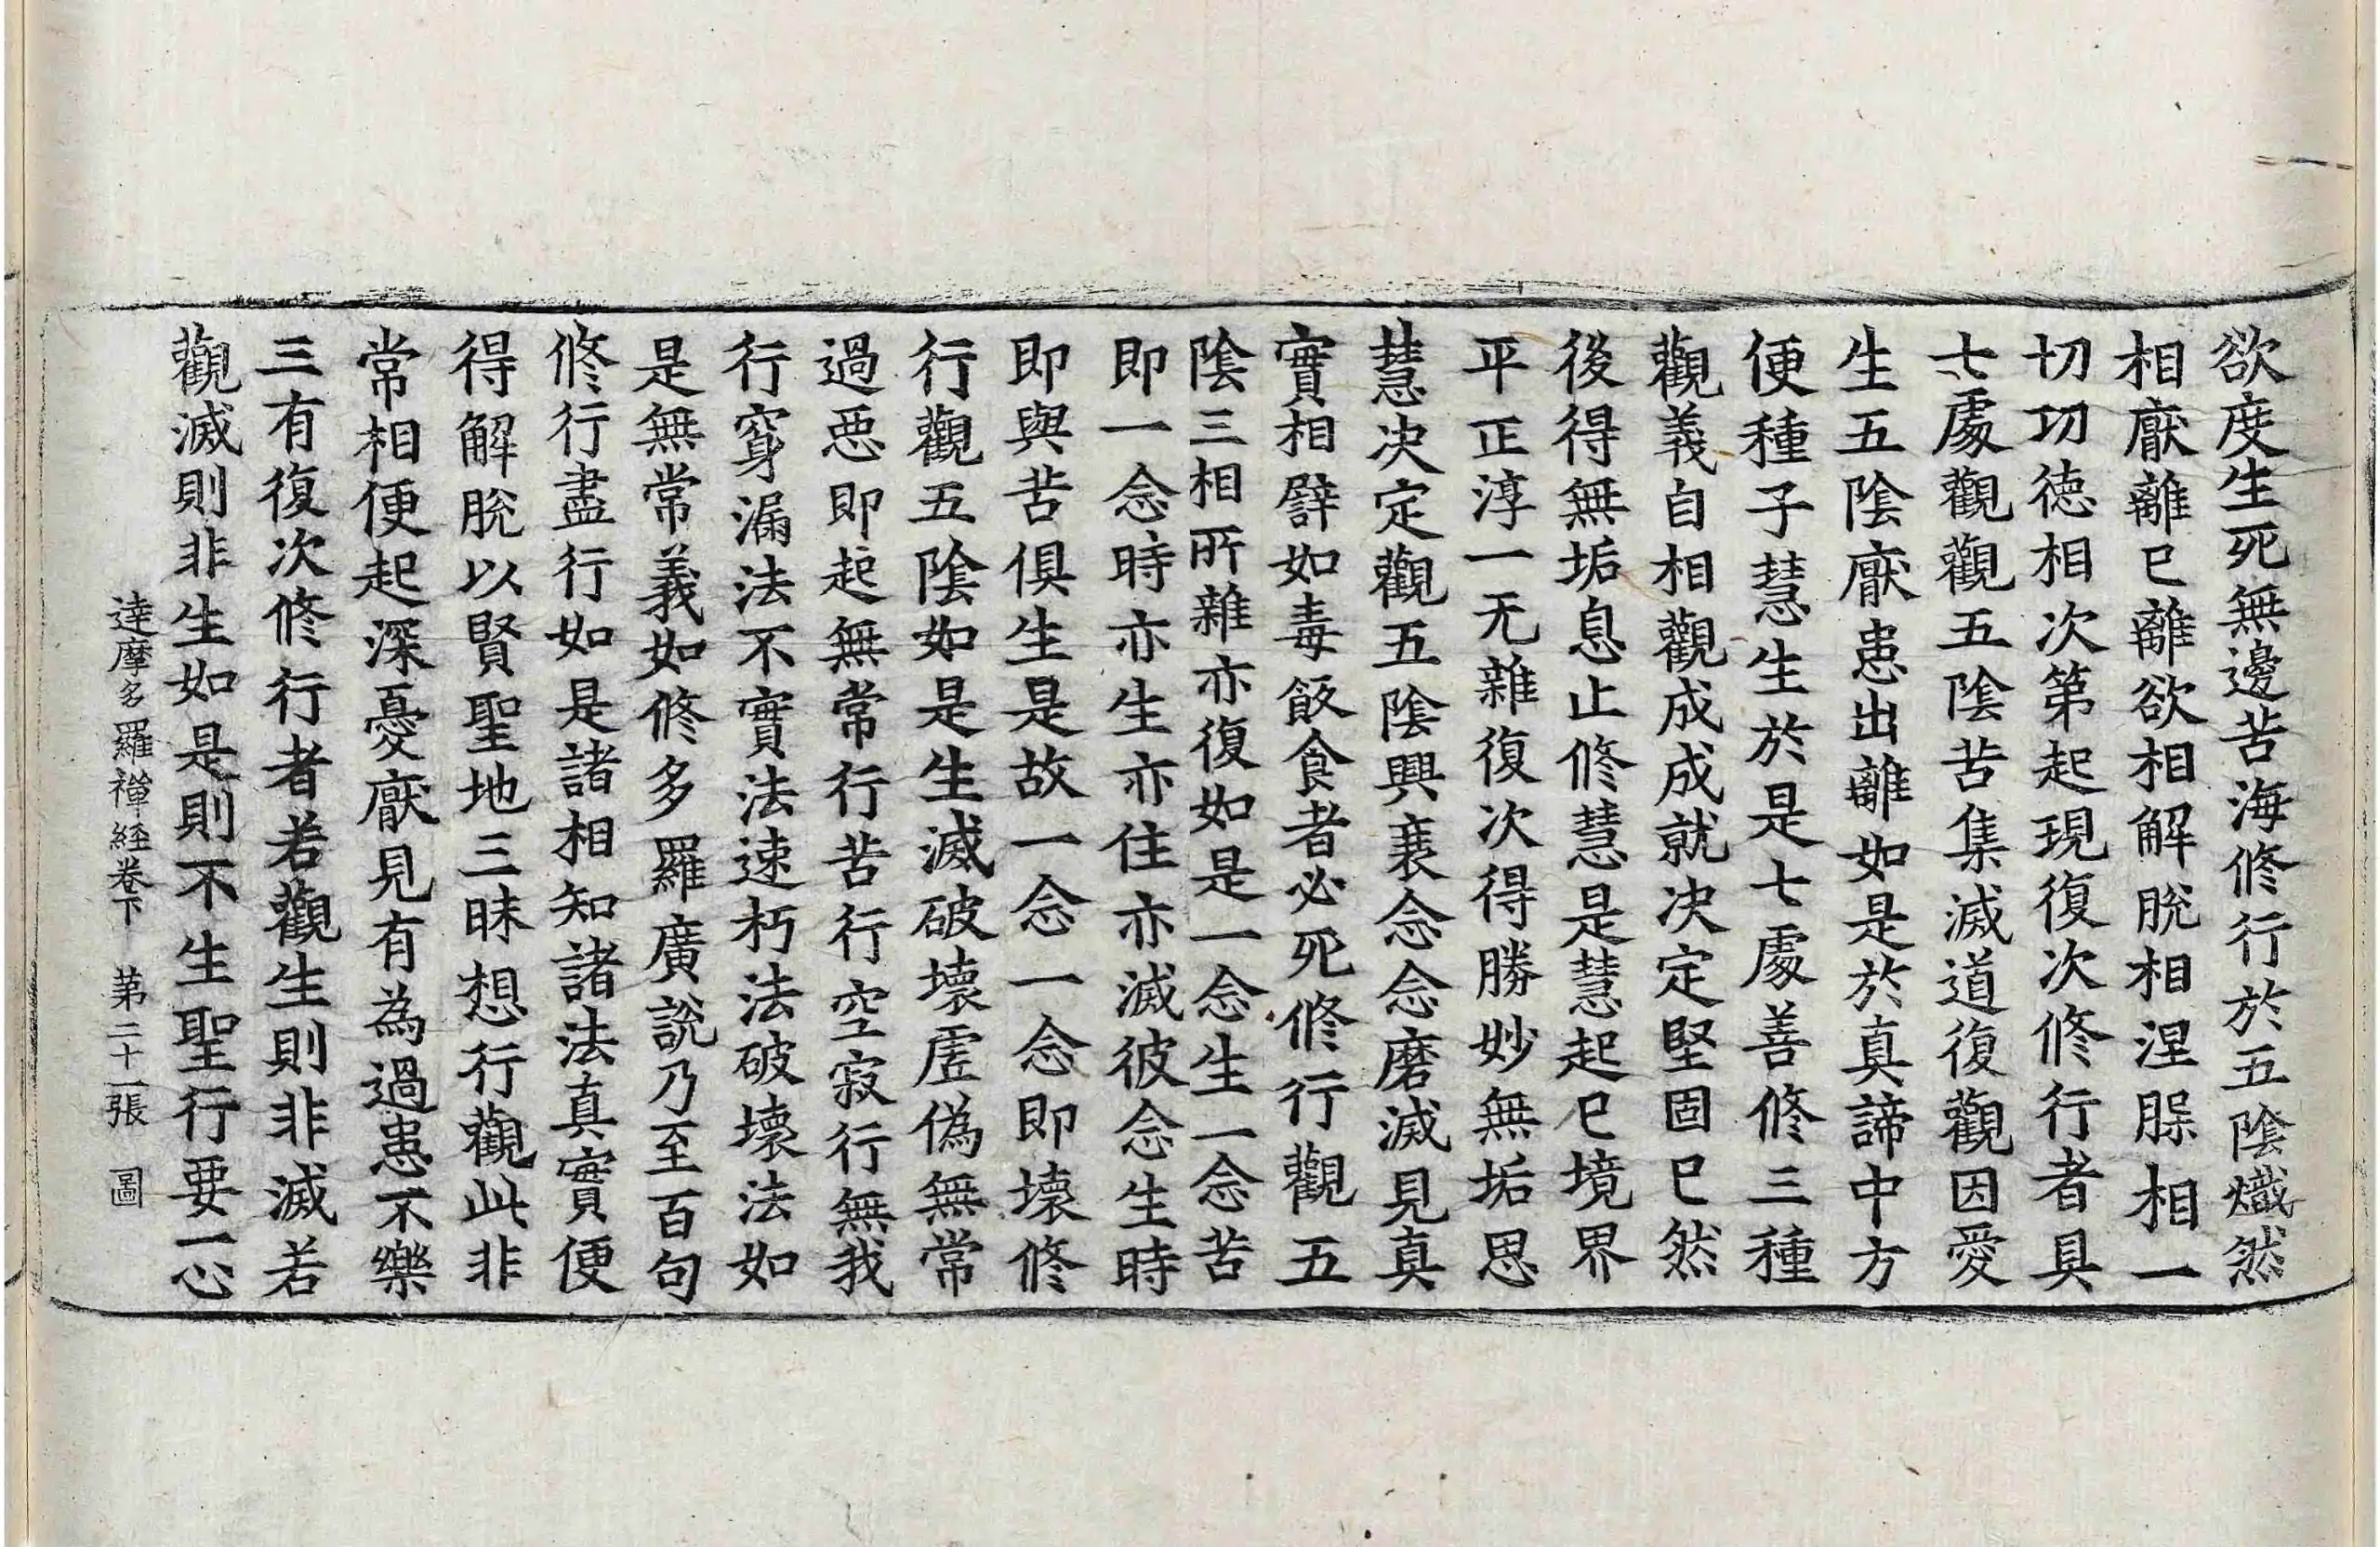 欲度生死無邊苦海修行於五陰熾然
相猒離已離欲相解脫相涅槃相一
切功德相次第起現復次修行者具
七處觀觀五陰苦集滅道復觀因愛
生五陰猒患出離如是於真諦中方
便種子慧生於是七處善修三種
觀義自相觀成成就决定堅固已然
後得無垢息止修慧是慧起已境界
平正淳一无雜復次得勝妙無垢思
慧决定觀五陰興衰念念磨滅見真
實相譬如毒飯食者必死修行觀五
陰三相所雜亦復如是一念生一念苦
即一念時亦生亦住亦滅彼念生時
即與苦俱生是故一念一念即壞修
行觀五陰如是生滅破壞虛偽無常
過惡即起無常行苦行空寂行無我
行窮漏法不實法速朽法破壞法如
是無常義如修多羅廣說乃至百句
修行盡行如是諸相知諸法真實便
得解脫以賢聖地三昧想行觀此非
常相便起深憂猒見有為過患不樂
三有復次修行者若觀生則非滅若
觀滅則非生如是則不生聖行要一心
達摩多羅禪経卷下　第二十一張　圖